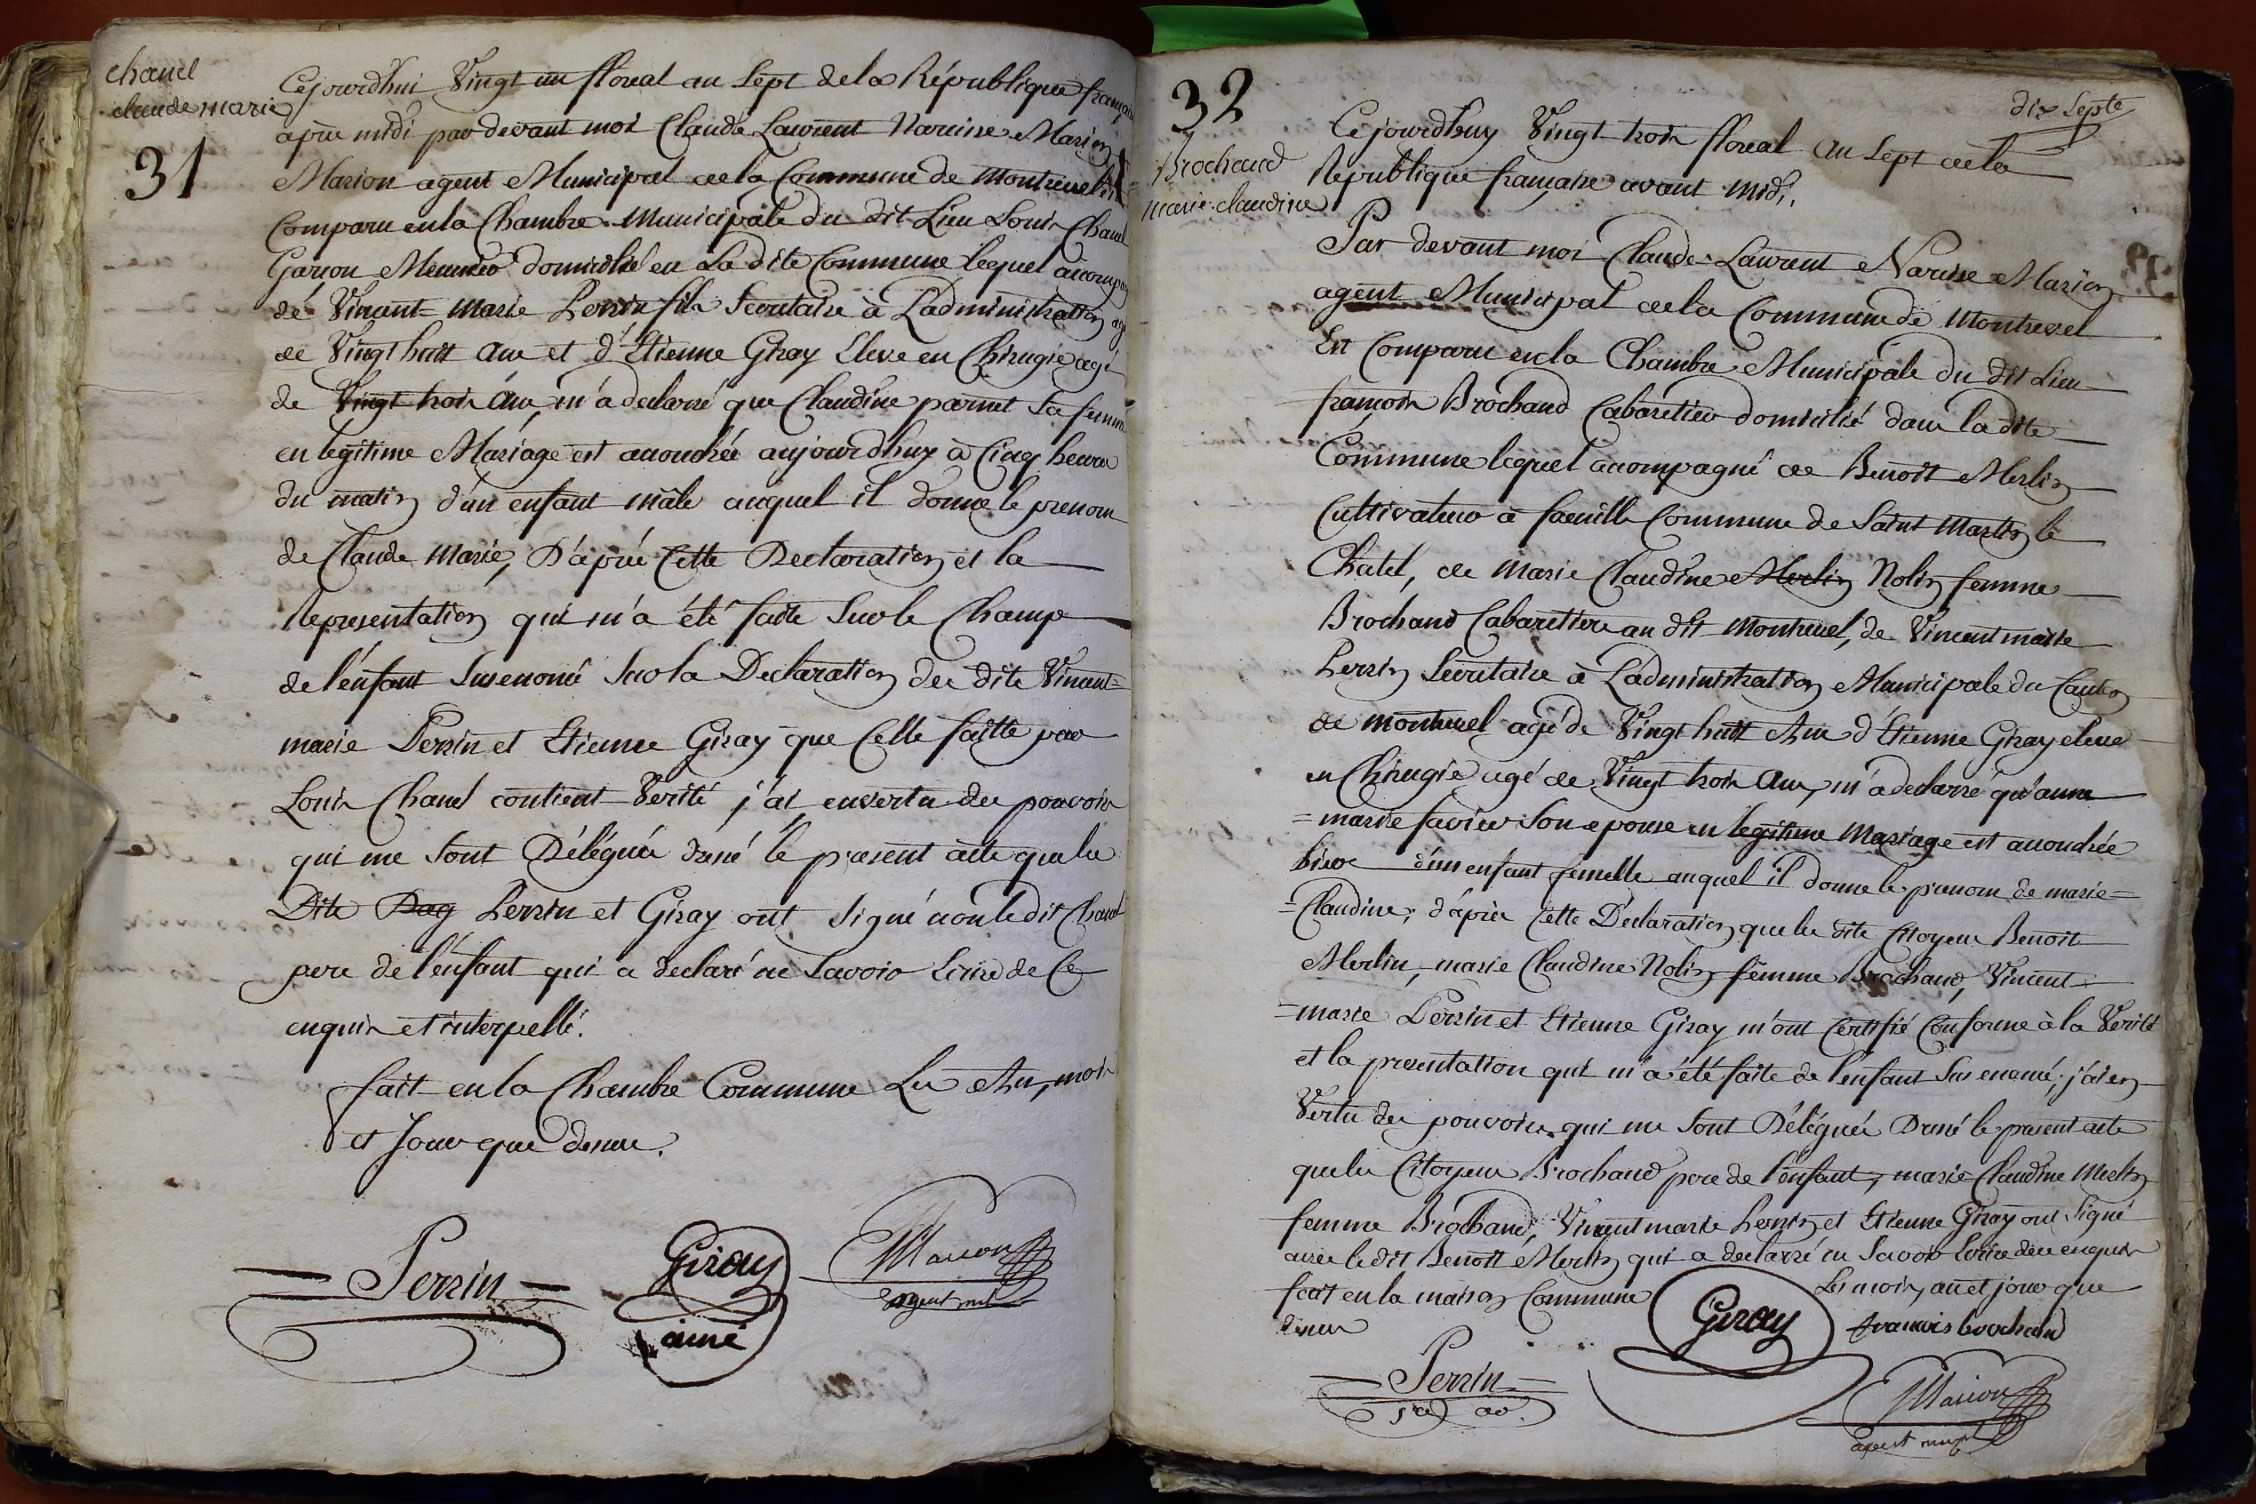 chanel
claude marie
31
Cejourdhui Vingt un floreal an Sept dela République française
après midi par devant moi Claude Laurent Narcisse Marion
Marion agent Municipal dela Commune de Montrevel Est
Comparu enla Chambre Municipale du dit Lieu Louis Chanel
Garçon Meunier domicilié en La dite Commune lequel acompagné
de Vincent=Marie Perrin fils Secretaire à Ladministration agé
de Vingt huit Ans et d'Etienne Giray Eleve en Chirugie agé
de Vingt trois Ans, m'a declarré que Claudine parnet Sa femme
en legitime Mariage est accouchée aujourdhuy à Cinq heures
du matin d'un enfant mâle auquel il donne le prenom
de Claude Marie, D'après Cette Declaration et la
Representation qui m'a été faite Sur le Champ
de l'enfant Susenomé Sur la Declaration des dits Vincent=
marie Perrin et Etienne Giray que Celle faitte par
Louis Chanel contient Verité j'ai envertu des pouvoirs
qui me Sont Délégués dresé le present acte que les
Dits Dag Perrin et Giray ont Signé non le dit Chanel
pere de l'enfant qui a declaré ne Savoir Ecrire de Ce
enquis et interpellé.
fait en la Chambre Commune Les An, mois
et Jour que dessus.
Perrin
Giray
ainé
Marion
agent mal
32
dix Septe
Brochand
marie claudine
Cejourdhuy Vingt trois floreal an Sept dela
République française avant midi.
Par devant moi Claude Laurent Narcisse Marion
agent Municipal dela Commune de Montrevel
Est Comparu enla Chambre Municipale du dit Lieu
françois Brochand Cabaretier domicilié dans la dite
Commune lequel acompagné de Benoit Merlin
Cultivateur à faeuille Commune de Saint Martin le
Chatel, de Marie Claudine Merlin Nolin femme
Brochand Cabarettier au dit Montrevel, de Vincent marie
Perrin Secretaire à Ladministration Municipale du Canton
de Montrevel agé de Vingt huit Ans d'Etienne Giray eleve
en Chirugie agé de Vingt trois Ans, m'a declarré qu'anne
=marie favier Son epouse en legitime Mariage est accouchée
hier d'un enfant femelle auquel il donne le prenom de marie=
=Claudine; d'après Cette Declaration que les dits Citoyens Benoit
Merlin, marie Claudine Nolin femme Brochand, Vincent=
=marie Perrin et Etienne Giray m'ont Certifié Conforme à la Verité
et la presentation qui m'a été faite de l'enfant Sus enomé; j'ai en
Vertu des pouvoirs qui me Sont Délégués Dresé le present acte
que les Citoyens Brochand pere de l'enfant, marie Claudine Merlin
femme Brochand, Vincent marie Perrin et Etienne Giray ont Signé
avec le dit Benoit Merlin qui a declarré ne Savoir Ecrire dece enquis
fait en la maison Commune Les mois, an et jour que
dessus
francois brochand
Giray
Perrin
Marion
agent mupl